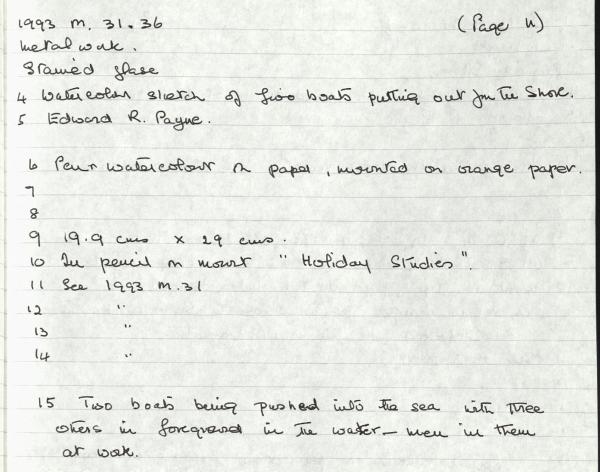 1993 M. 31.36 (Page 11)
Metal work.
Stained glass
4 Watercolour sketch of two boats putting out from the Shore.
5 Edward R. Payne.
6 Pen + watercolour on paper, mounted on orange paper.
7
8
9 19.9 cms x 29 cms.
10 In pencil on mount "Holiday Studies".
11 See 1993 M.31
12 "
13 "
14 "
15 Two boats being pushed into the sea with three
others in foreground in the water – men in them
at work.